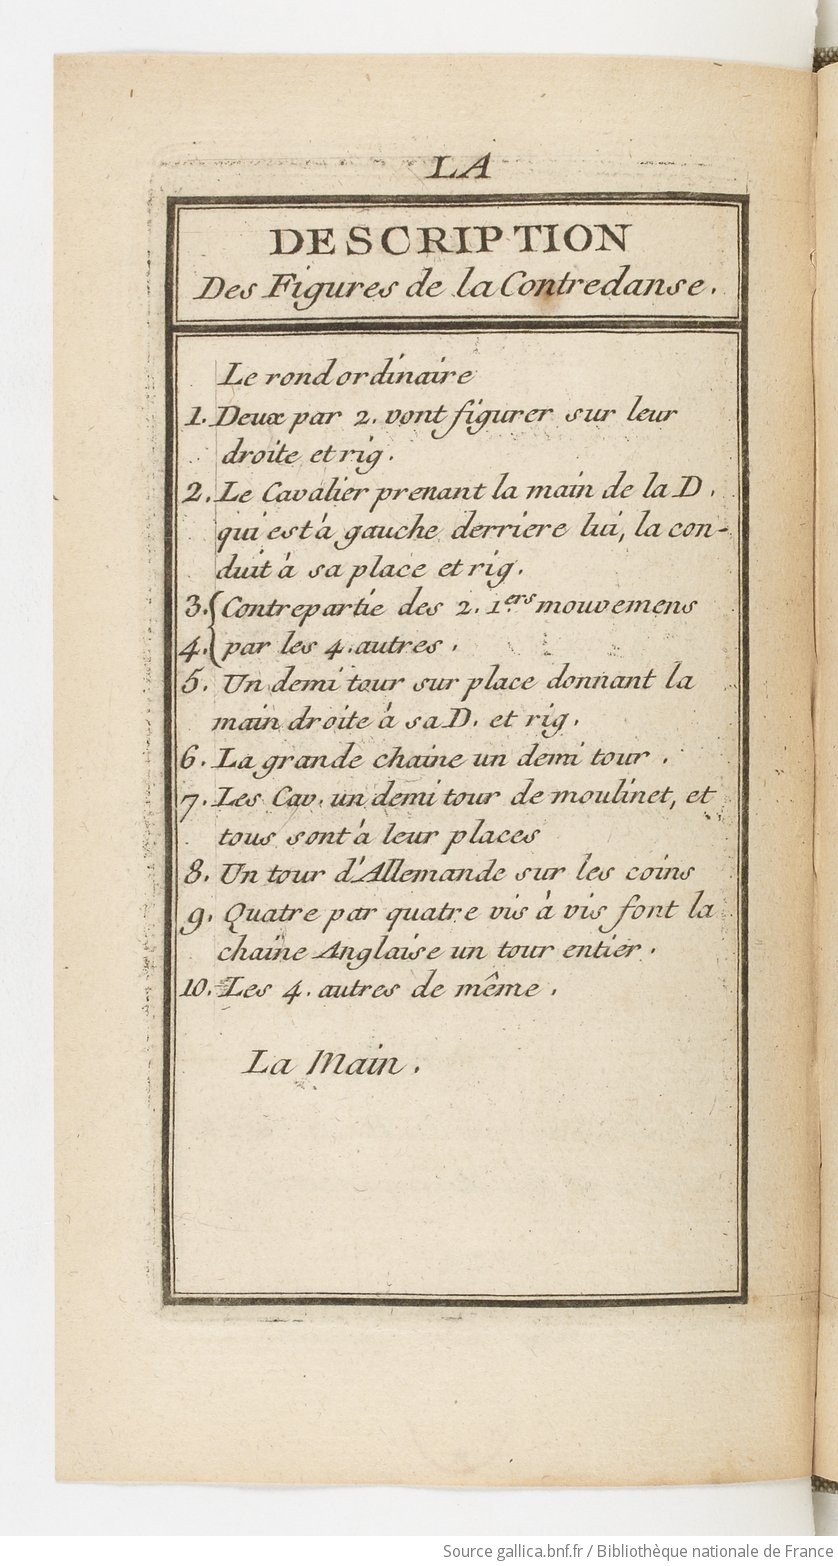 LA
DESCRIPTION
Des Figures de la Contredanse.
Le rond ordinaire
1. Deux par 2. vont figurer sur leur
droite et rig.
2. Le Cavalier prenant la main de la D.
qui est à gauche derriere lui, la con-
duit à sa place et rig.
3. { Contrepartie des 2. 1ers mouvemens
4. { par les 4. autres.
5. Un demi tour sur place donnant la
main droite à sa D. et rig.
6. La grande chaine un demi tour.
7. Les Cav. un demi tour de moulinet, et
tous sont à leur places
8. Un tour d'Allemande sur les coins
9. Quatre par quatre vis à vis font la
chaine Anglaise un tour entier.
10. Les 4. autres de même.
La Main.
Source gallica.bnf.fr / Bibliothèque nationale de France